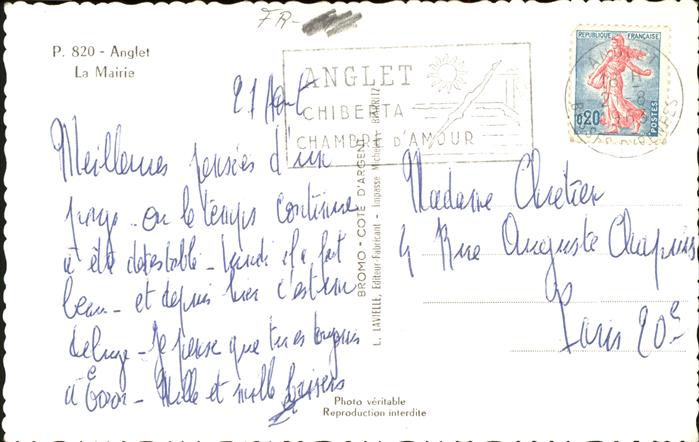 FR-
P. 820 - Anglet
La Mairie
ANGLET
CHIBERTA
CHAMBRE d'AMOUR
REPUBLIQUE FRANÇAISE
0,20
POSTES
21 Août
Meilleures pensées d'un
pays où le temps continue
à être détestable - lundi il a fait
beau - et depuis hier c'est un
déluge - Je pense que tu es toujours
à
Mille et mille baisers
BROMO - COTE D'ARGENT
L. LAVIELLE, Editeur-Fabricant - Impasse Michelet - BIARRITZ
Madame Chrétien
4 Rue Auguste Chapuis
Paris 20e
Photo véritable
Reproduction interdite